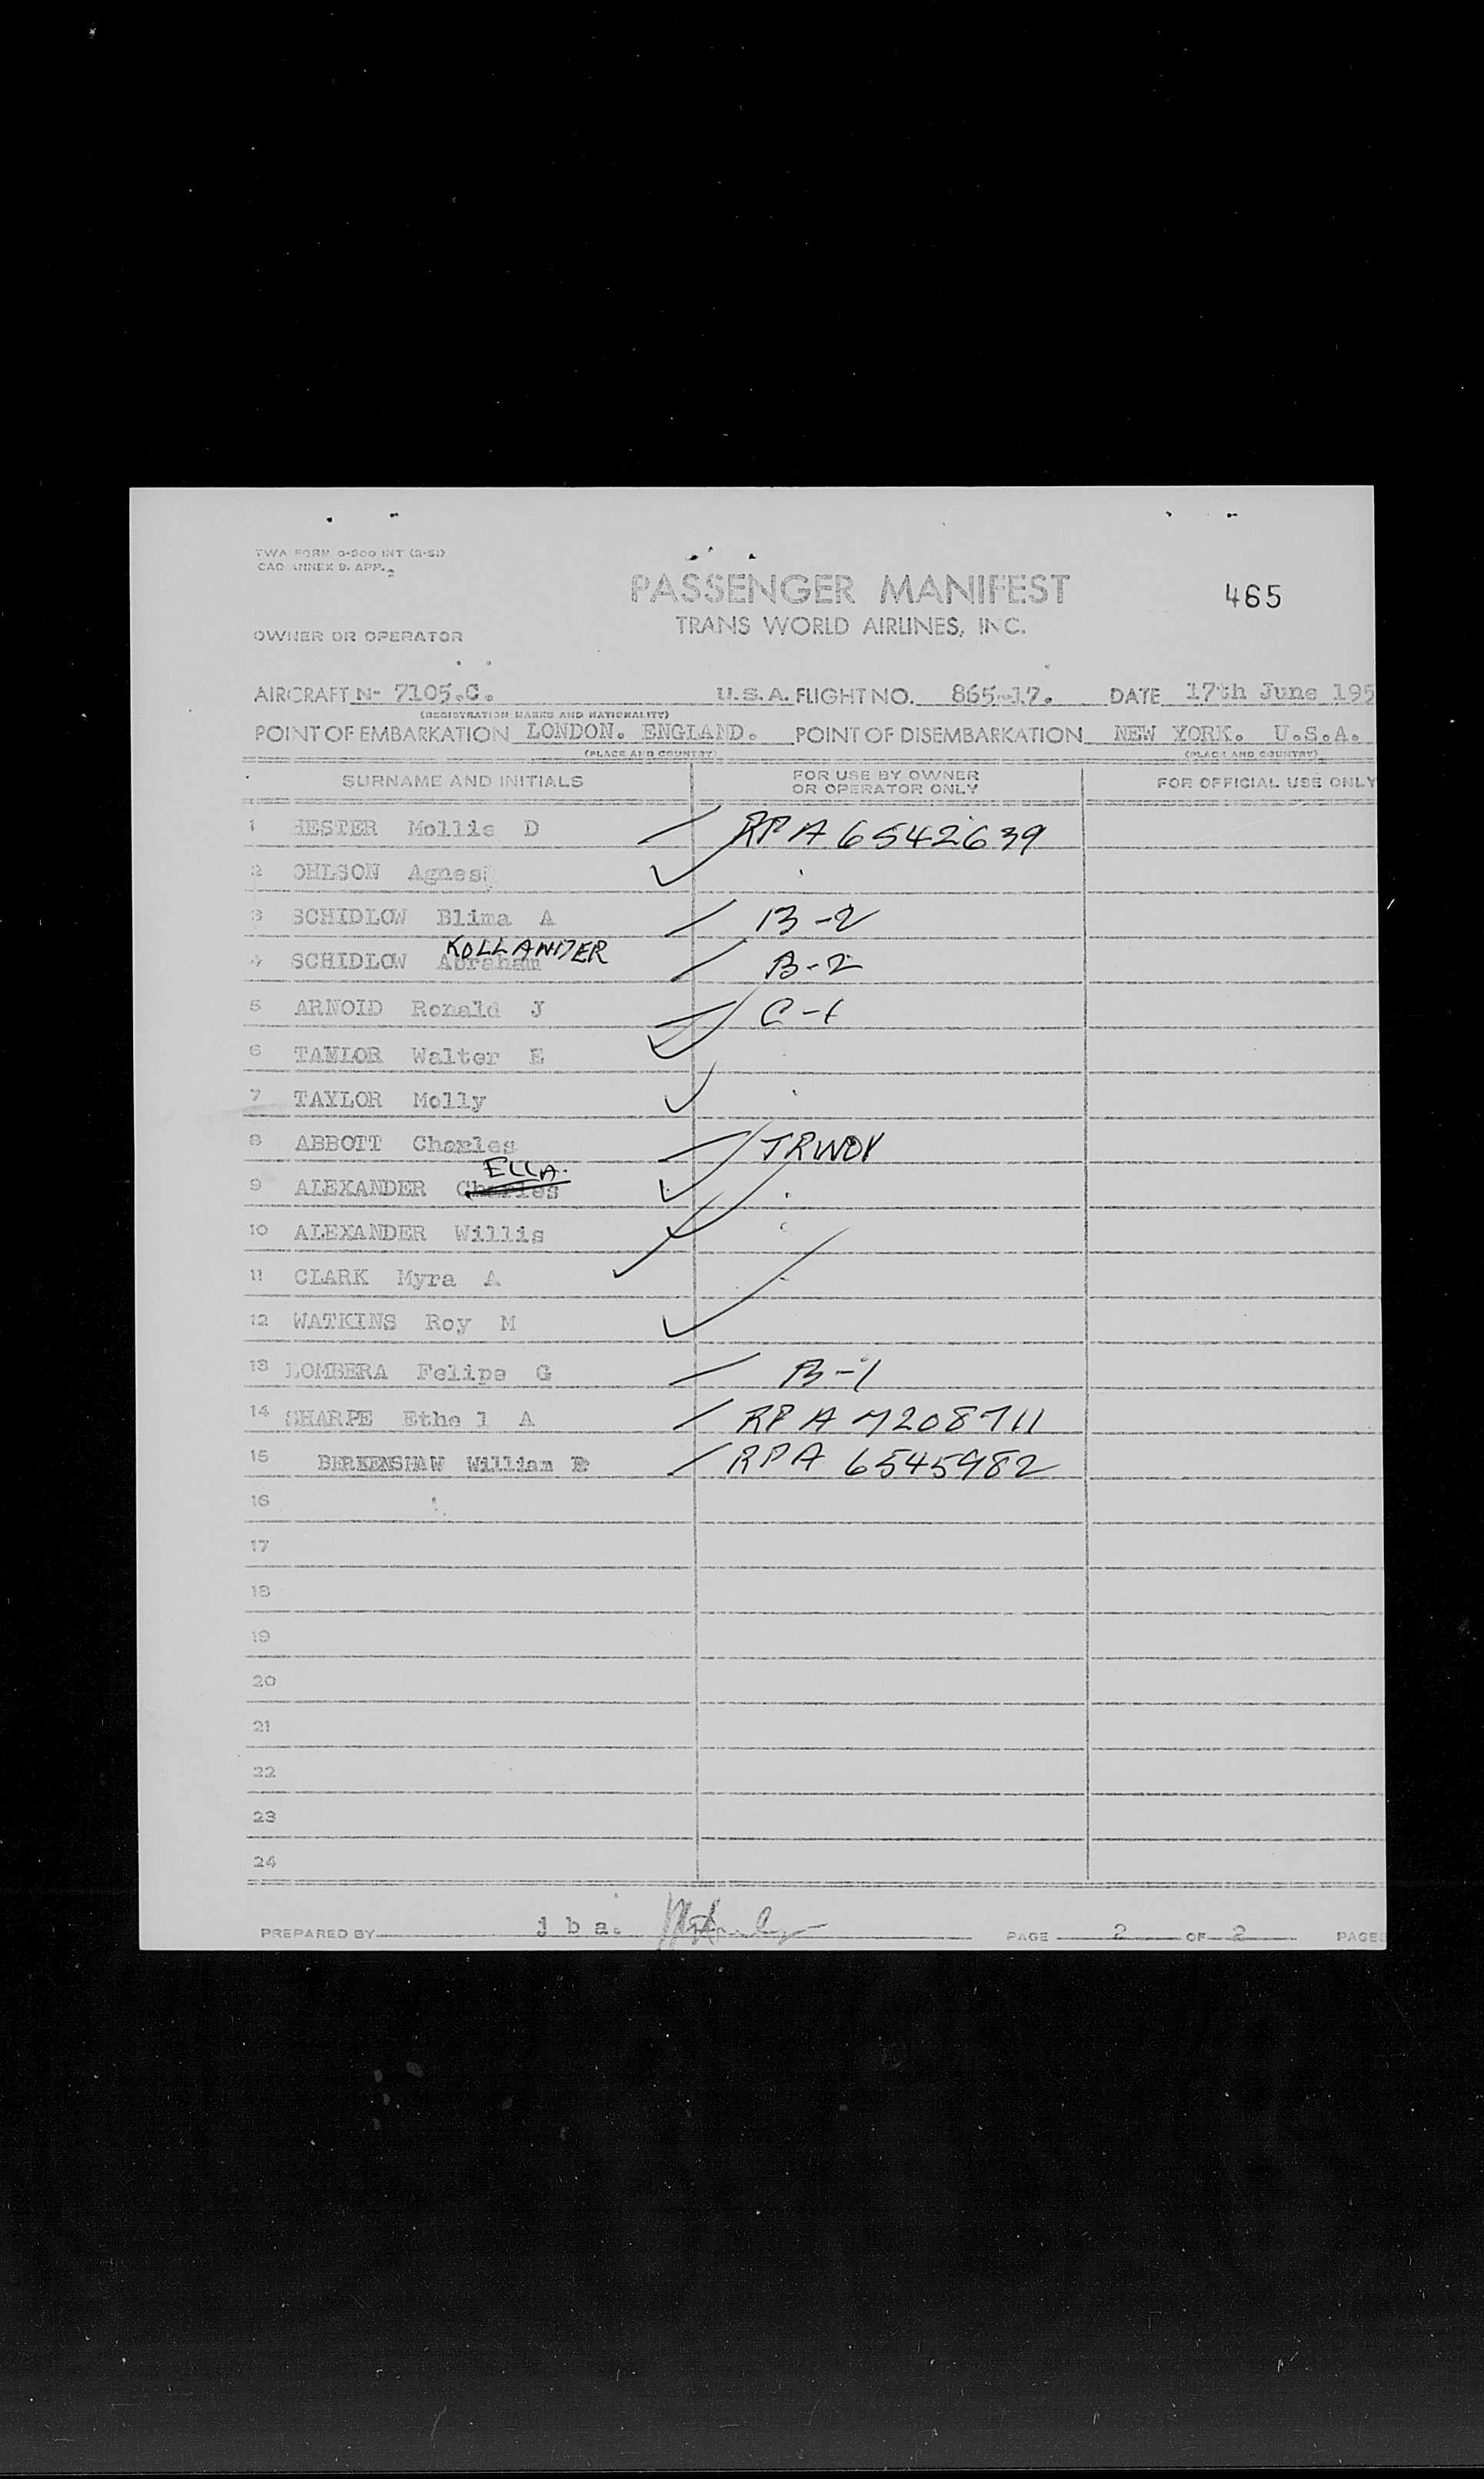 TWA FORM O-900 INT (2-51)
CAO ANNEX 9. APP.
PASSENGER MANIFEST
465
TRANS WORLD AIRLINES, INC.
OWNER OR OPERATOR
AIRCRAFT N- 7105.C. U.S.A. FLIGHT NO. 865-17. DATE 17th June 195
(REGISTRATION MARKS AND NATIONALITY)
POINT OF EMBARKATION LONDON. ENGLAND. POINT OF DISEMBARKATION NEW YORK. U.S.A.
(PLACE AND COUNTRY) (PLACE AND COUNTRY)
SURNAME AND INITIALS FOR USE BY OWNER OR OPERATOR ONLY FOR OFFICIAL USE ONLY
1 HESTER Mollie D RPA 6542639
2 OHLSON Agnes
3 SCHIDLOW Blima A B-2
KOLLANDER
4 SCHIDLOW Abraham B-2
5 ARNOLD Ronald J C-1
6 TAYLOR Walter E
7 TAYLOR Molly
8 ABBOTT Charles TRWOV
ELLA.
9 ALEXANDER Charles
10 ALEXANDER Willis
11 CLARK Myra A
12 WATKINS Roy M
13 LOMBERA Felipe G B-1
14 SHARPE Ethe l A RPA 7208711
15 BERKENSHAW William RPA 6545982
16
17
18
19
20
21
22
23
24
PREPARED BY j b a. PAGE 2 OF 2 PAGES